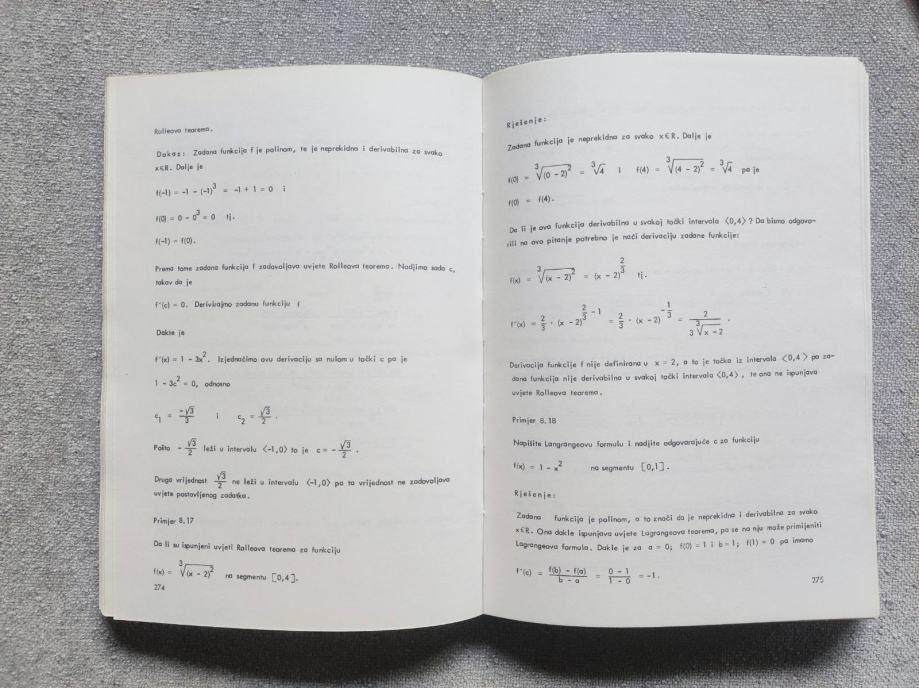 Rolleova teorema.
Dokaz: Zadana funkcija f je polinom, te je neprekidna i derivabilna za svako
x∈R. Dalje je
f(-1) = -1 - (-1)³ = -1 + 1 = 0 i
f(0) = 0 - 0³ = 0 tj.
f(-1) = f(0).
Prema tome zadana funkcija f zadovoljava uvjete Rolleova teorema. Nadjimo sada c,
takav da je
f'(c) = 0. Derivirajmo zadanu funkciju f
Dakle je
f'(x) = 1 - 3x². Izjednačimo ovu derivaciju sa nulom u točki c pa je
1 - 3c² = 0, odnosno
c₁ = -√3/3 i c₂ = √3/2 .
Pošto - √3/2 leži u intervalu ⟨-1,0⟩ to je c = - √3/2 .
Druga vrijednost √3/2 ne leži u intervalu ⟨-1,0⟩ pa ta vrijednost ne zadovoljava
uvjete postavljenog zadatka.
Primjer 8.17
Da li su ispunjeni uvjeti Rolleova teorema za funkciju
f(x) = ∛(x - 2)² na segmentu [0,4].
274
Rješenje:
Zadana funkcija je neprekidna za svako x∈R. Dalje je
f(0) = ∛(0 - 2)² = ∛4 i f(4) = ∛(4 - 2)² = ∛4 pa je
f(0) = f(4).
Da li je ova funkcija derivabilna u svakoj točki intervala ⟨0,4⟩ ? Da bismo odgovo-
rili na ovo pitanje potrebno je naći derivaciju zadane funkcije:
f(x) = ∛(x - 2)² = (x - 2)^(2/3) tj.
f'(x) = 2/3 · (x - 2)^(2/3 - 1) = 2/3 · (x - 2)^(-1/3) = 2/(3 ∛(x - 2)) .
Derivacija funkcije f nije definirana u x = 2, a to je točka iz intervala ⟨0,4⟩ pa za-
dana funkcija nije derivabilna u svakoj točki intervala ⟨0,4⟩ , te ona ne ispunjava
uvjete Rolleova teorema.
Primjer 8.18
Napišite Langrangeovu formulu i nadjite odgovarajuće c za funkciju
f(x) = 1 - x² na segmentu [0,1].
Rješenje:
Zadana funkcija je polinom, a to znači da je neprekidna i derivabilna za svako
x∈R. Ona dakle ispunjava uvjete Lagrangeova teorema, pa se na nju može primijeniti
Lagrangeova formula. Dakle je za a = 0; f(0) = 1 i b = 1; f(1) = 0 pa imamo
f'(c) = (f(b) - f(a))/(b - a) = (0 - 1)/(1 - 0) = -1.
275